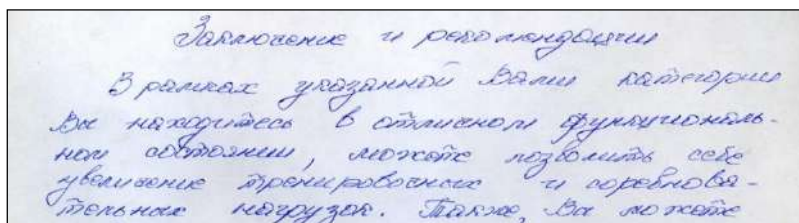 Заключение и рекомендации
В рамках указанной Вами категории
Вы находитесь в отличном функциональ-
ном состоянии, можете позволить себе
увеличение тренировочных и соревнова-
тельных нагрузок. Также, Вы можете